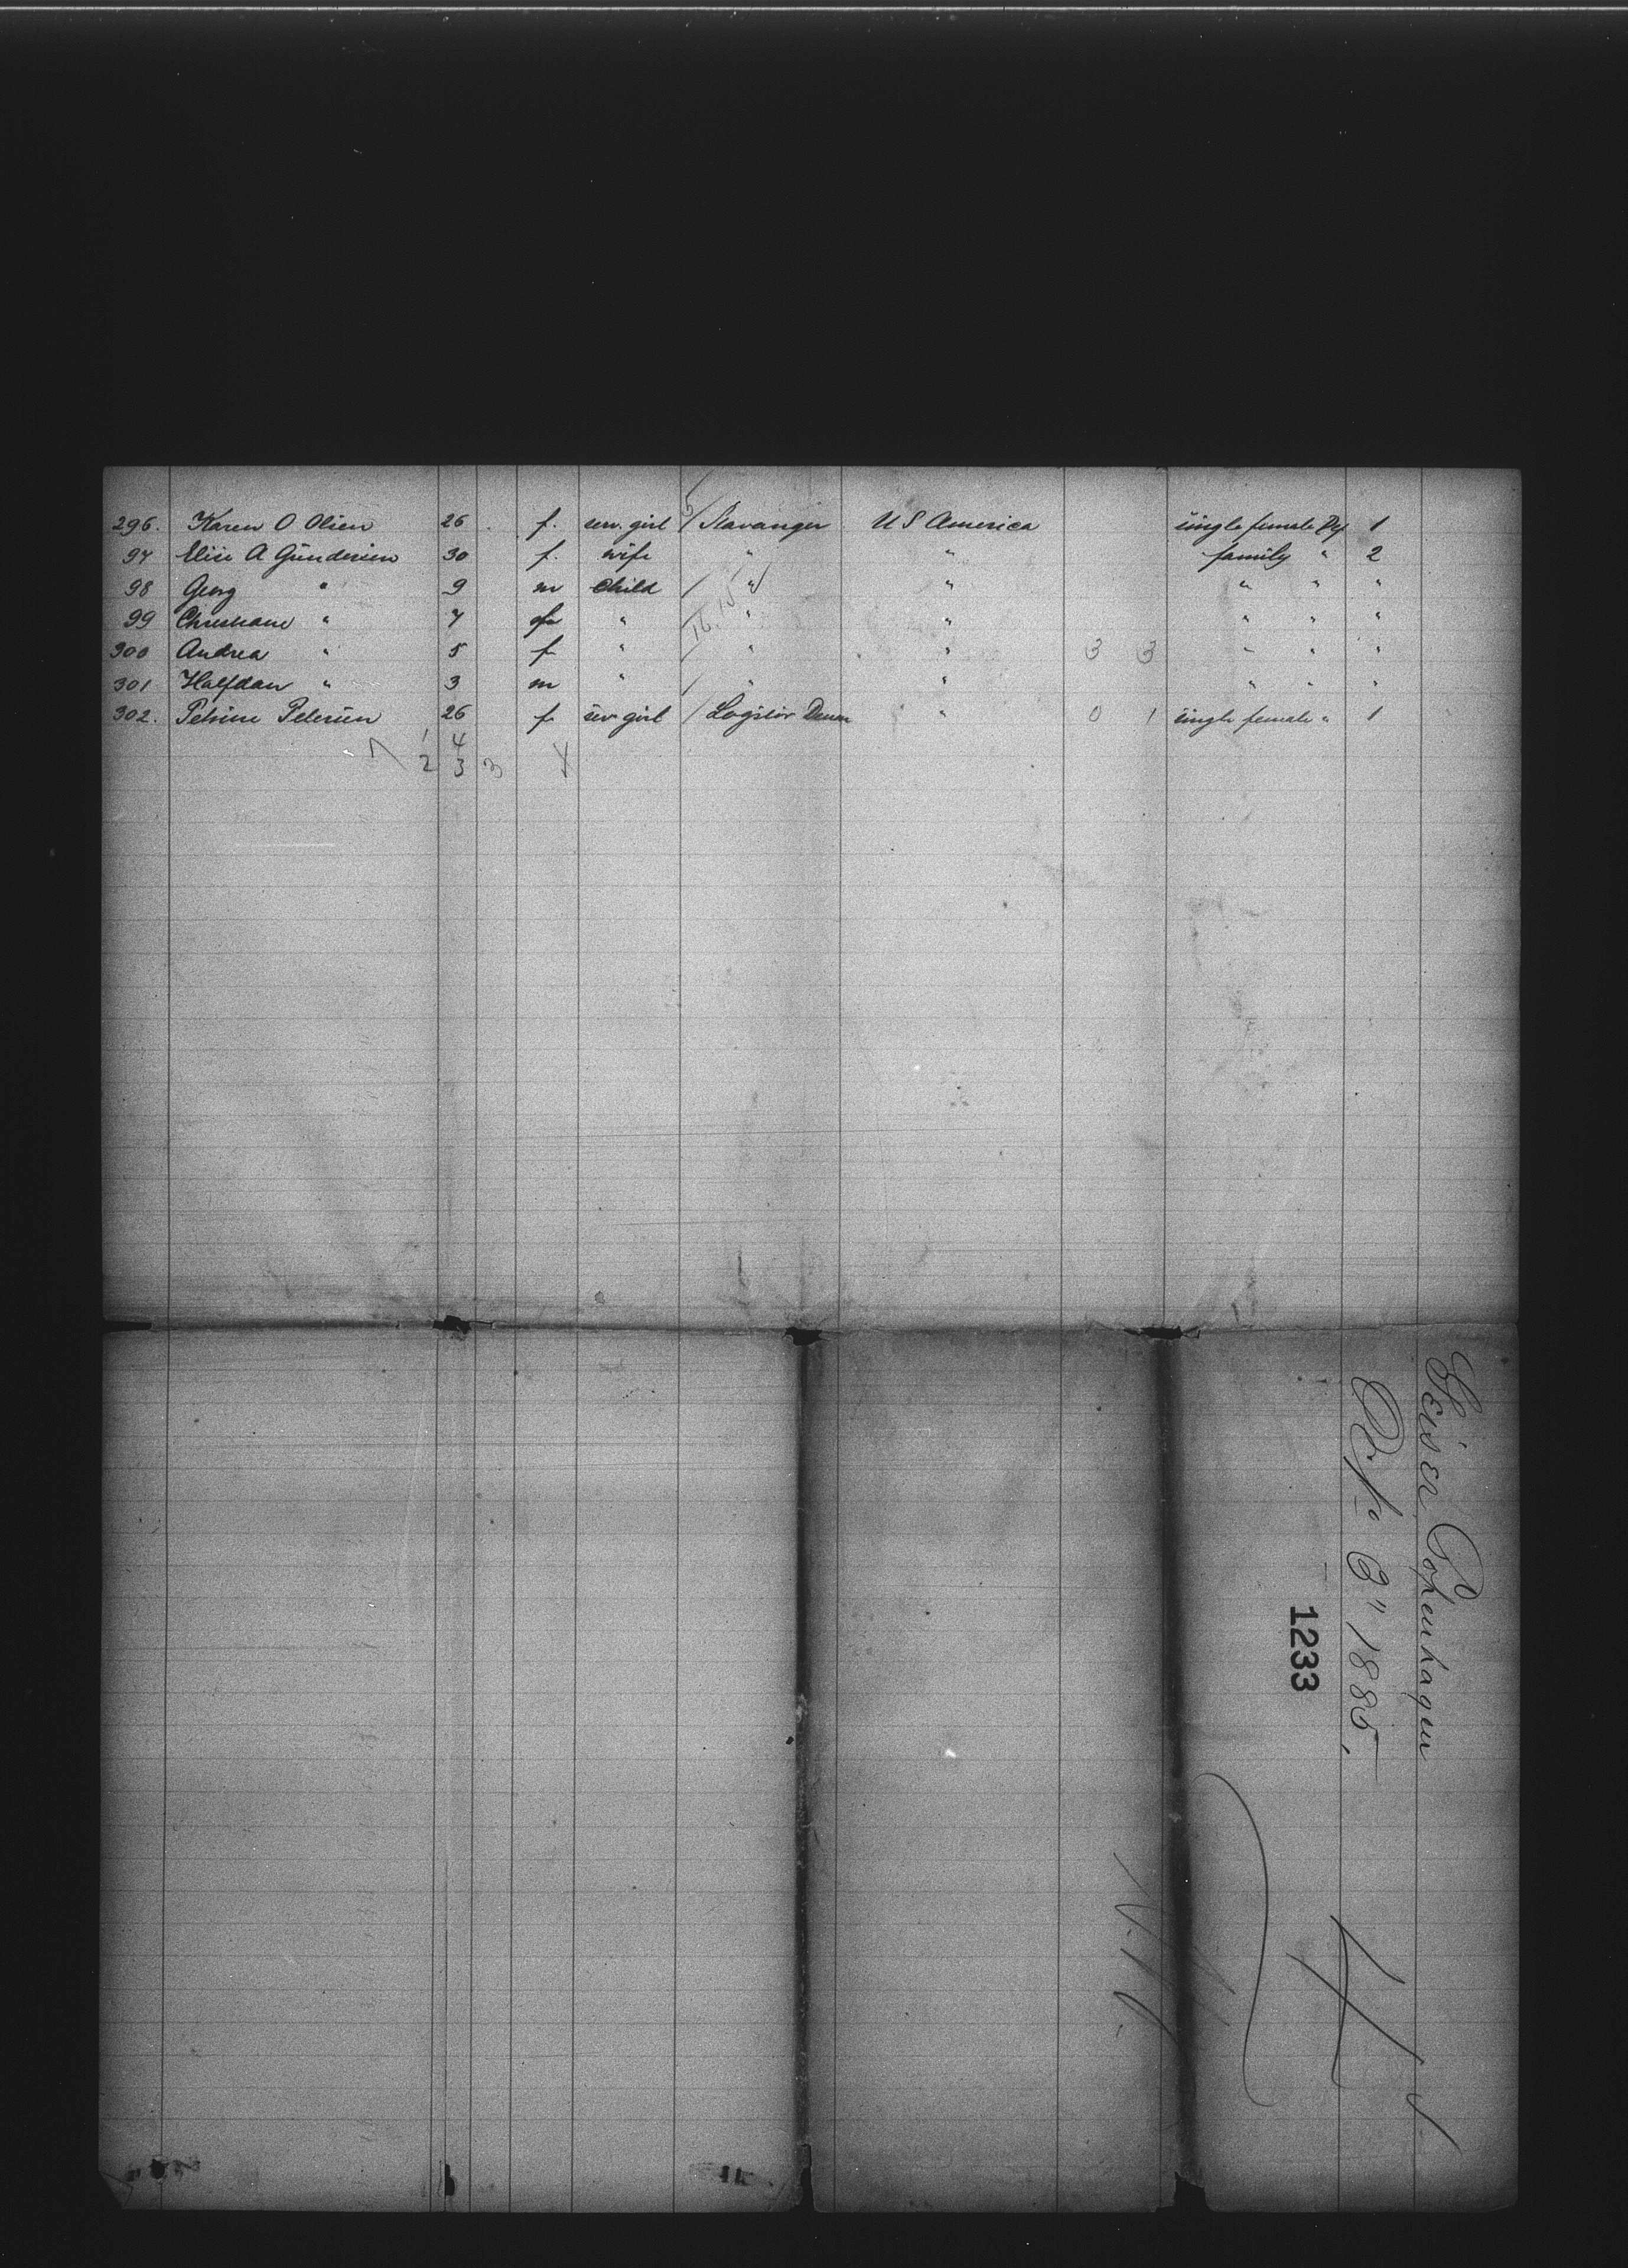 296. Karen O Olsen 26 f. serv. girl / Stavanger US America single female Dp 1
97 Elise A Gundersen 30 f. wife " " family " 2
98 Georg " 9 m Child / " " " " "
99 Christiane " 7 f " " " " " "
300 Andrea " 5 f " / " " 3 3 " " "
301 Halfdan " 3 m " / " " " " "
302. Petrine Petersen 26 f serv girl / Logstör Denm " 0 1 single female " 1
1 4
7 2 3 3 4
Geiser Copenhagen
1885.
1233